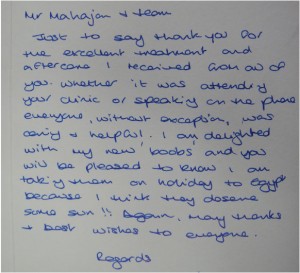 Mr Mahajan + team
Just to say thank you for
the excellent treatment and
aftercare I received from all of
you. Whether it was attending
your clinic or speaking on the phone
everyone, without exception, was
caring & helpful. I am delighted
with my 'new' boobs and you
will be pleased to know I am
taking them on holiday to Egypt
because I think they deserve
some sun!! Again, many thanks
+ best wishes to everyone.
Regards